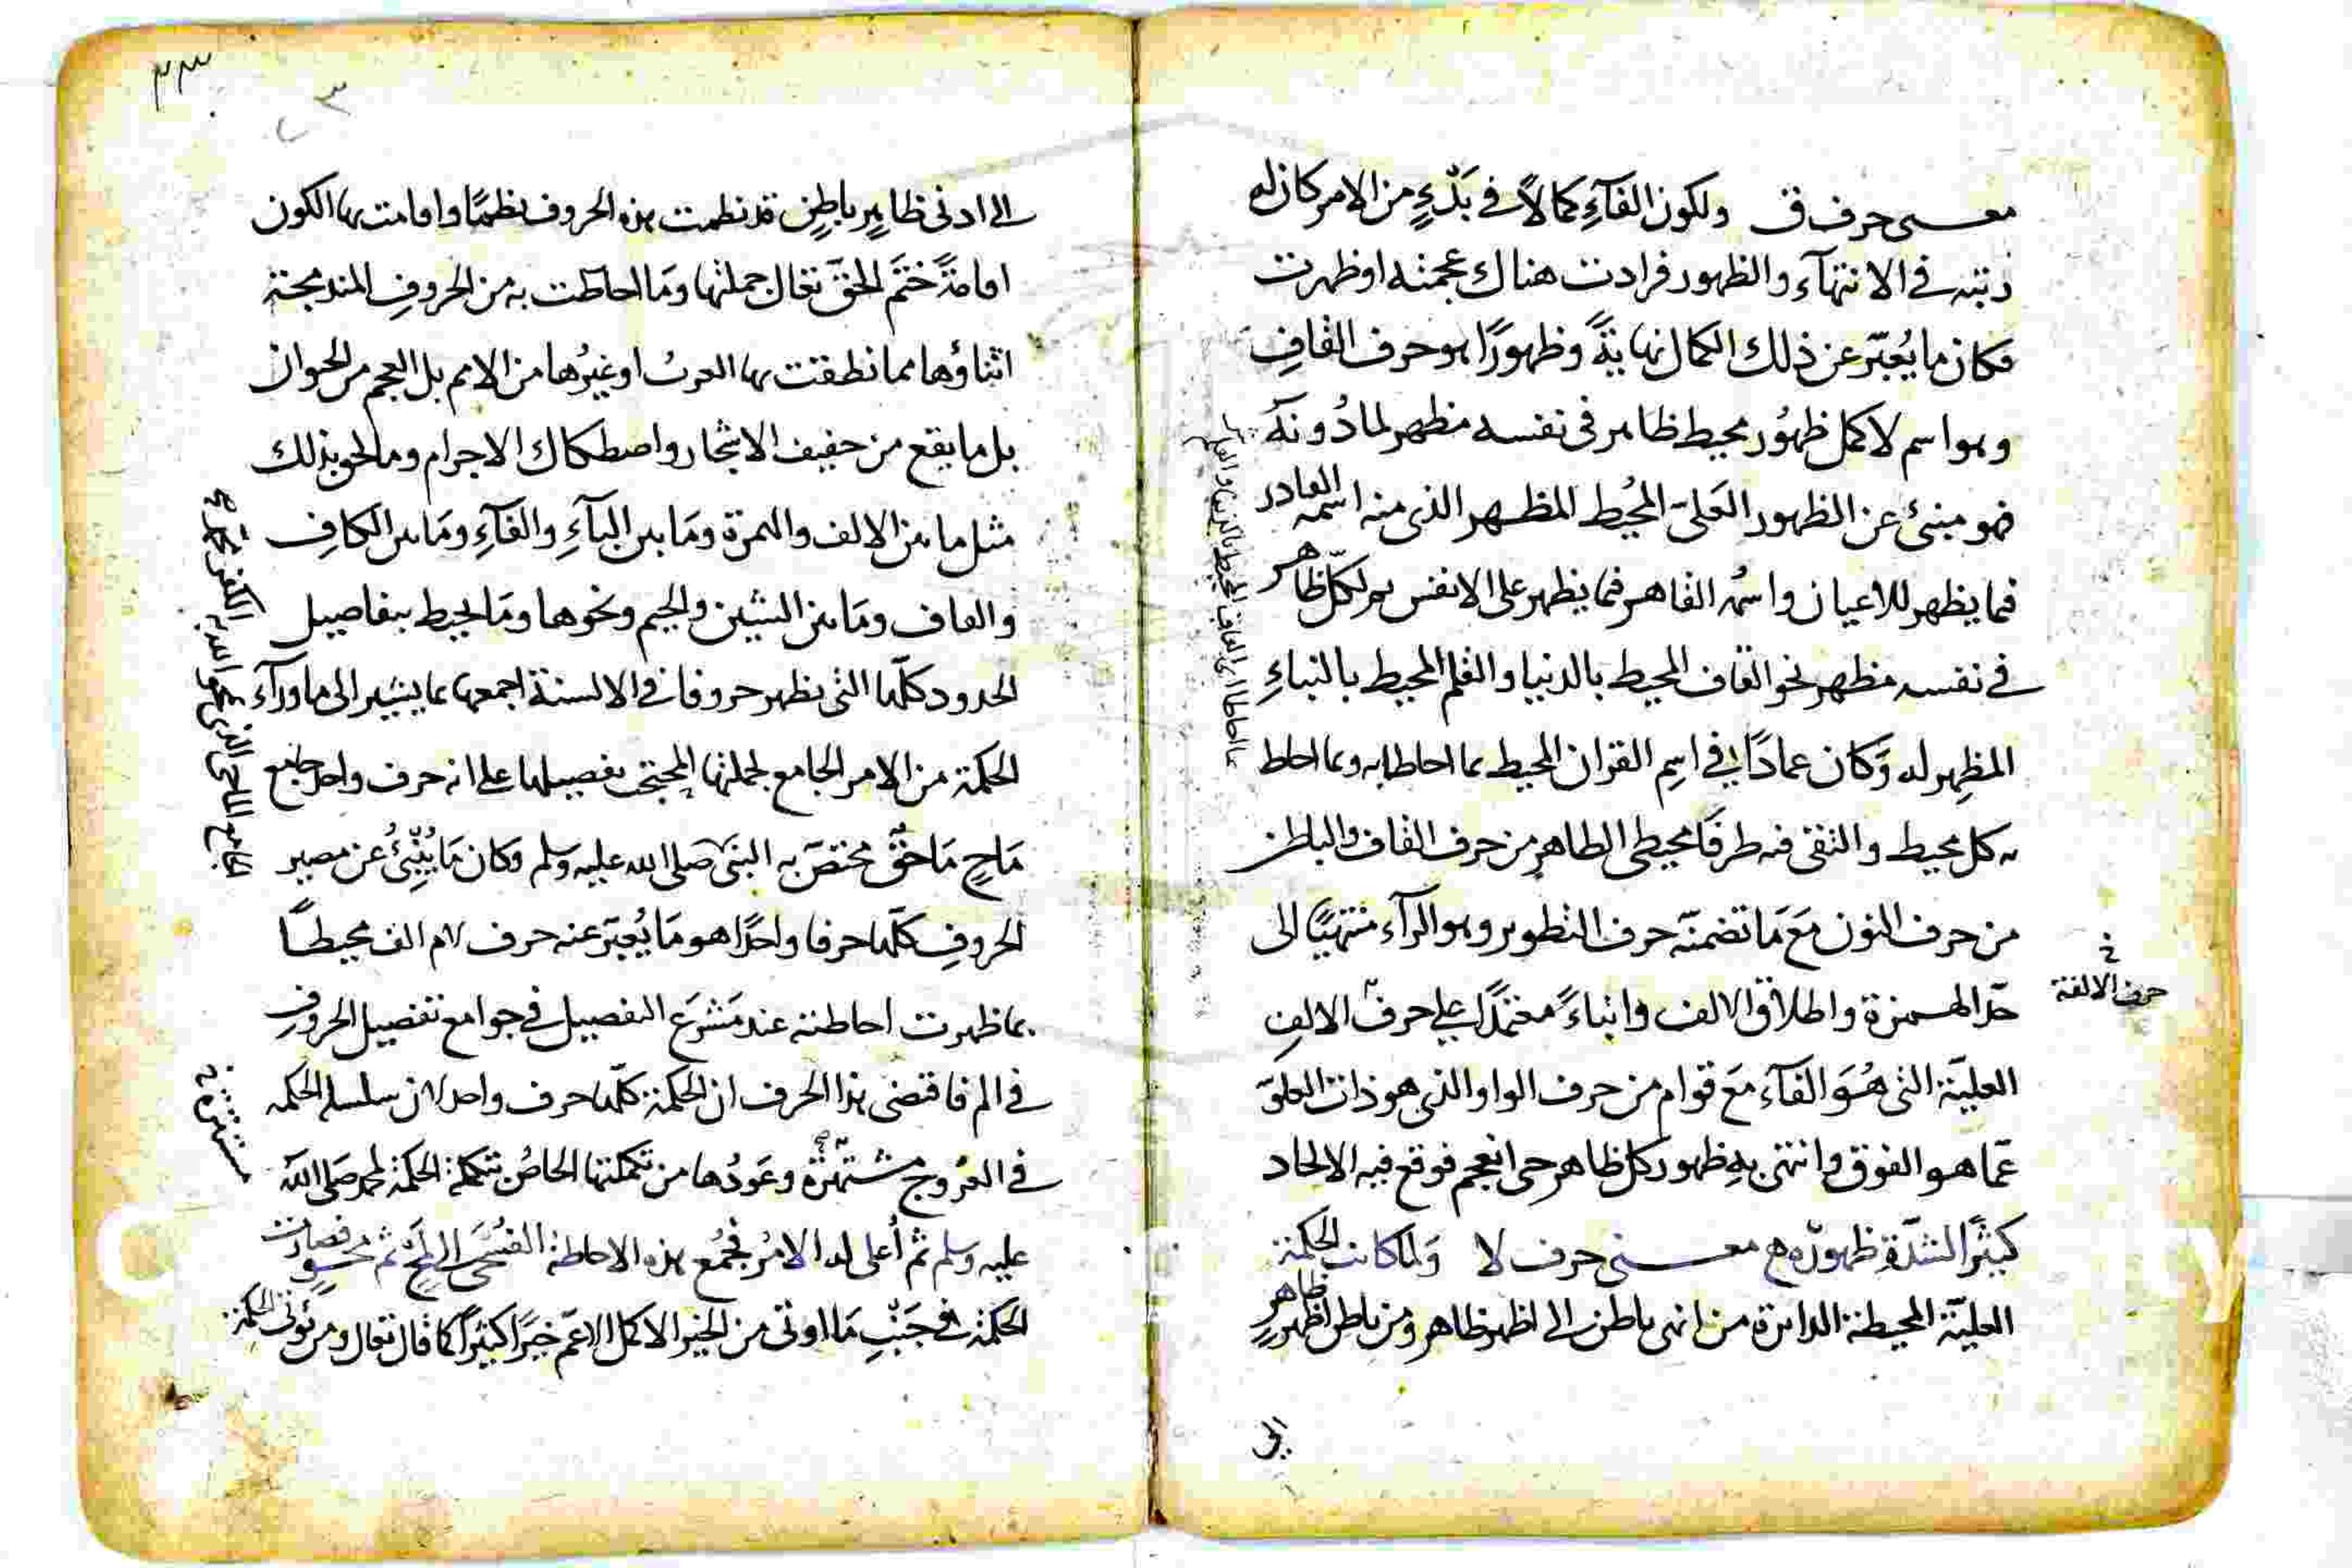 معنى حرف ق ولكون الفآءِ كمالاً في بَدْءٍ من الامر كان له
رتبته في الانتهآء والظهور فرادت هناك عجمته اوظهرت
فكان ما يُعبّر عن ذلك الكمال نهايةً وظهورًا هو حرف القافِ
وهو اسم لاكمل ظهُور محيط ظاهر في نفسه مظهر لما دُونَهُ
فهو منبئ عن الظهور العَليّ المُحيط المظهر الذي منه اسمُه القادر
فما يظهر للاعيان واسمُه القاهر فما يظهر على الانفس هو لكلّ ظاهر
في نفسه مظهر نحو القاف المحيط بالدنيا والقلم المحيط بالنباءِ
المظهِر له وَكان عمادًا في اسمِ القران المحيط بما احاطا به وبما احاط
به كل محيط والتقى فيه طرفَا محيطي الظاهرِ من حرف القاف والباطن
من حرف النون مَعَ مَا تضمنّه حرف التطوير وهو الرآء منتهيًا الى
حدّ الهمزة واطلاق الالف وانباءً معتمدًا على حرف الالفِ
حرف الالفة
العليّة التي هُوَ الفآء مَعَ قوام من حرف الواو الذي هو ذات العلوّ
عمّا هو الفوق وانتهى بهِ ظهور كل ظاهر حى انعجم فوقع فيه الالحاد
كثيرًا لشدّة ظهورهِ معنى حرف لا وَلما كانت الحكمة
العليّة المحيطة الدائرة من انهى باطن الى اظهر ظاهر ومن باطن اظهر ظاهرٍ
الى
٣٣
٣
الى ادنى ظاهرٍ باطنٍ قد نظمت بهذه الحروف نظمًا واقامت بها الكون
اقامةً خَتَم الحقّ تعالى جملتها ومَا احاطت به من الحروفِ المندمجة
اثناؤها مما نطقت بها العربُ اوغيرُها من الامم بل العجم من الحيوان
بل ما يقع من حفيف الاشجار واصطكاك الاجرام وما نحو ذلك
مثل ما بين الالف والهمزة ومَا بين البآءِ والفآءِ ومَا بين الكافِ
والقاف ومَا بين الشين والجيم ونحوها ومَا يحيط بتفاصيل
الحدود كلّها التي تظهر حروفا في الالسنة اجمعها بما يشير الى ما ورآء
الحكمة من الامر الجامع لجملتها تفصيلها على انه حرف واحد جامع
مَاحٍ مَاحقٌ مختصّ به النبي صلى الله عليه وسلم وكان مَا يُنْبِئُ عن مصير
الحروفِ كلّها حرفا واحدًا هو مَا يُعبّر عنه حرف لام الف محيطًا
بما ظهرت احاطته عند مَشرَع التفصيل في جوامع تفصيل الحروفِ
في الم فاقتضى هذا الحرف ان الحكمة كلّها حرف واحد لان سلسلة الحكمة
في العُرُوج مشتهرة وعَودُها من تكملتها الخاصُ تتكملة الحكمة لمحمد صلى الله
عليه وسلم ثم أُعلى له الامرُ فجُمع بهذه الاحاطة ثم فصارت
الحكمة في جَنْبِ مَا اوتي من الخير الاكمل الاعمّ خيرًا كثيرًا كما قال تعالى ومن يؤتى الحكمة